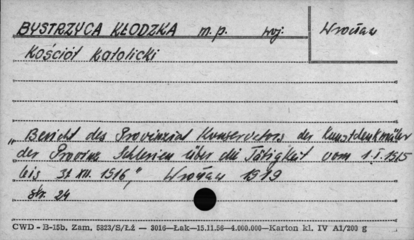 BYSTRZYCA KŁODZKA m.p. woj. Wrocław
Kościół katolicki
„Bericht des Provinzial Konservators der Kunstdenkmäler
der Provinz Schlesien über die Tätigkeit vom 1.I.1915
bis 31 XII. 1916", Wrocław 1919
str. 24
CWD - B-15b, Zam. 5823/S/Łż — 3016—Łak—15.11.56—4.000.000—Karton kl. IV A1/200 g